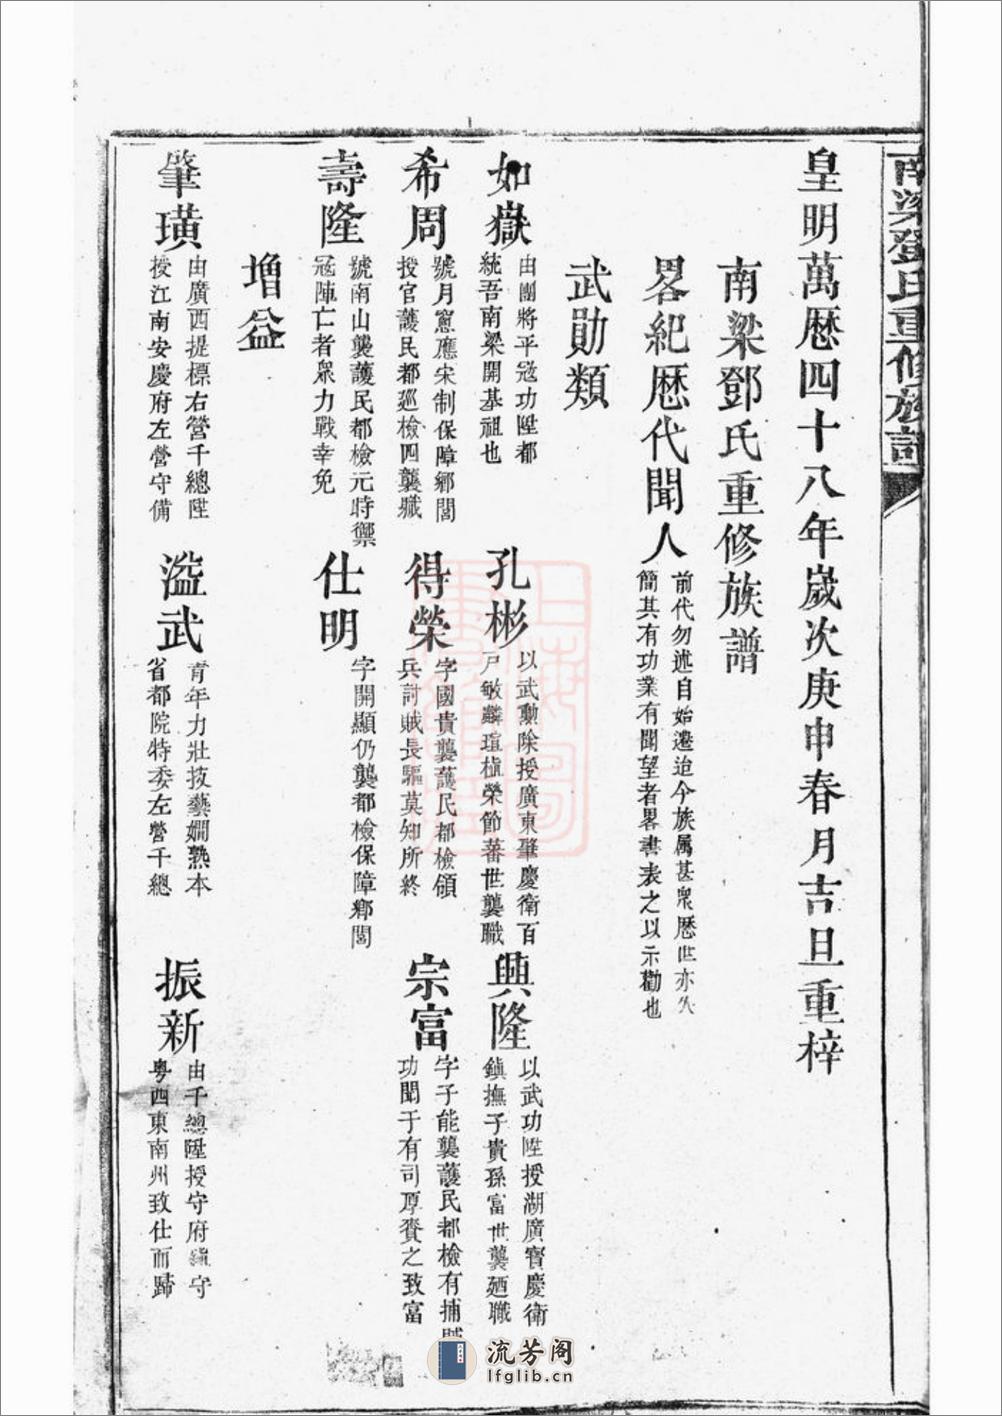 南梁鄧氏重修族譜
皇明萬歷四十八年歲次庚申春月吉旦重梓
南梁鄧氏重修族譜
畧紀歷代聞人
前代勿述自始遷迨今族属甚衆歷世亦久
簡其有功業有聞望者畧書表之以示勸也
武勛類
如嶽
由團將平冦功陞都
統吾南梁開基祖也
孔彬
以武勳除授廣東肇慶衛百
戶敏麟瑄槙榮節蕃世襲職
興隆
以武功陞授湖廣寳慶衛
鎮撫子貴孫富世襲廼職
希周
號月窻應宋制保障鄉閭
授官護民都廵檢四襲職
得榮
字國貴襲護民都檢領
兵討賊長驅莫知所終
宗富
字子能襲護民都檢有捕賊
功聞于有司厚賚之致富
壽隆
號南山襲護民都檢元時禦
冦陣亡者衆力戰幸免
仕明
字開顯仍襲都檢保障鄉閭
增益
肇璜
由廣西提標右營千總陞
授江南安慶府左營守備
溢武
青年力壯技藝嫺熟本
省都院特委左營千總
振新
由千總陞授守府鎮守
粵西東南州致仕而歸
流芳阁
lfglib.cn